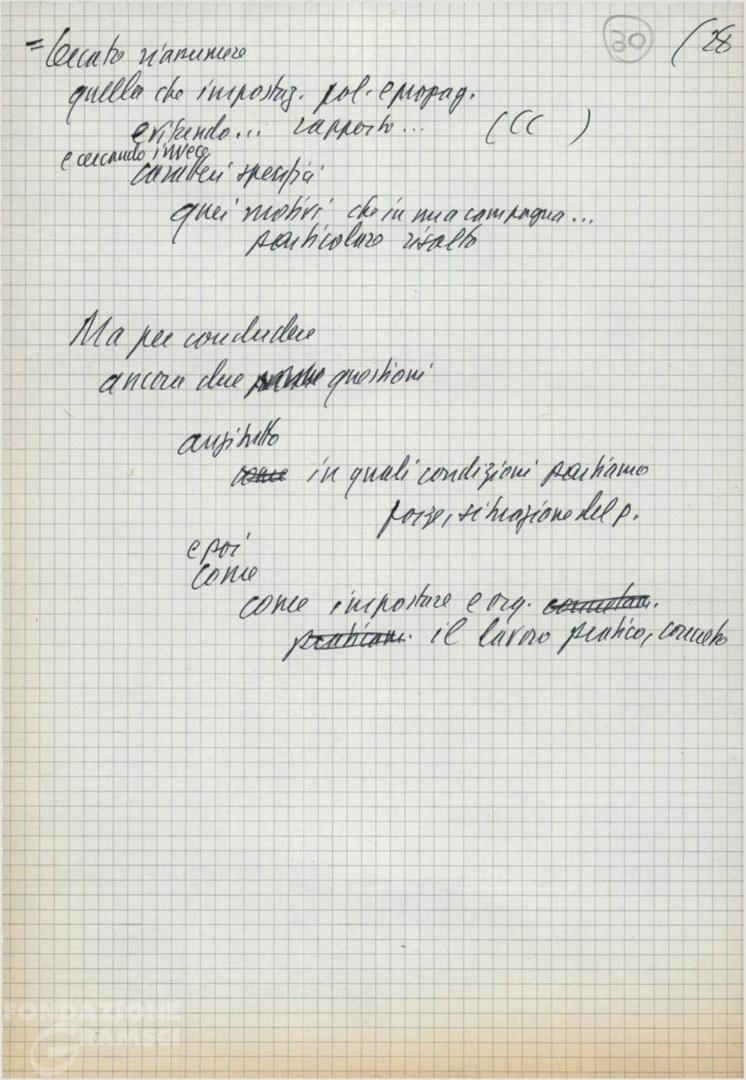 30 (28
= Cercato riassumere
quella che impostaz. pol. e propag.
evitando... rapporto... (CC )
e cercando invece
caratteri specifici
quei motivi che in una campagna...
particolare risalto
Ma per concludere
ancora due questioni
anzitutto
come in quali condizioni partiamo
forze, situazione del p.
e poi
come
come impostare e org. concretam.
praticam. il lavoro pratico, concreto
FONDAZIONE
GRAMSCI